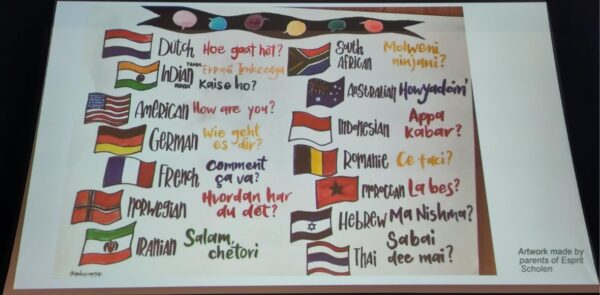 Dutch Hoe gaat hèt?
Indian TAMIL Eppadi Irukeenga
HINDI Kaise ho?
American How are you?
German Wie geht es dir?
French Comment ça va?
Norwegian Hvordan har du det?
Iranian Salam, chetori
South African Molweni ninjani?
Australian Howyadoin'
Indonesian Appa Kabar?
Romanie Ce faci?
Moroccan La bes?
Hebrew Ma Nishma?
Thai Sabai dee mai?
Artwork made by
parents of Esprit
Scholen